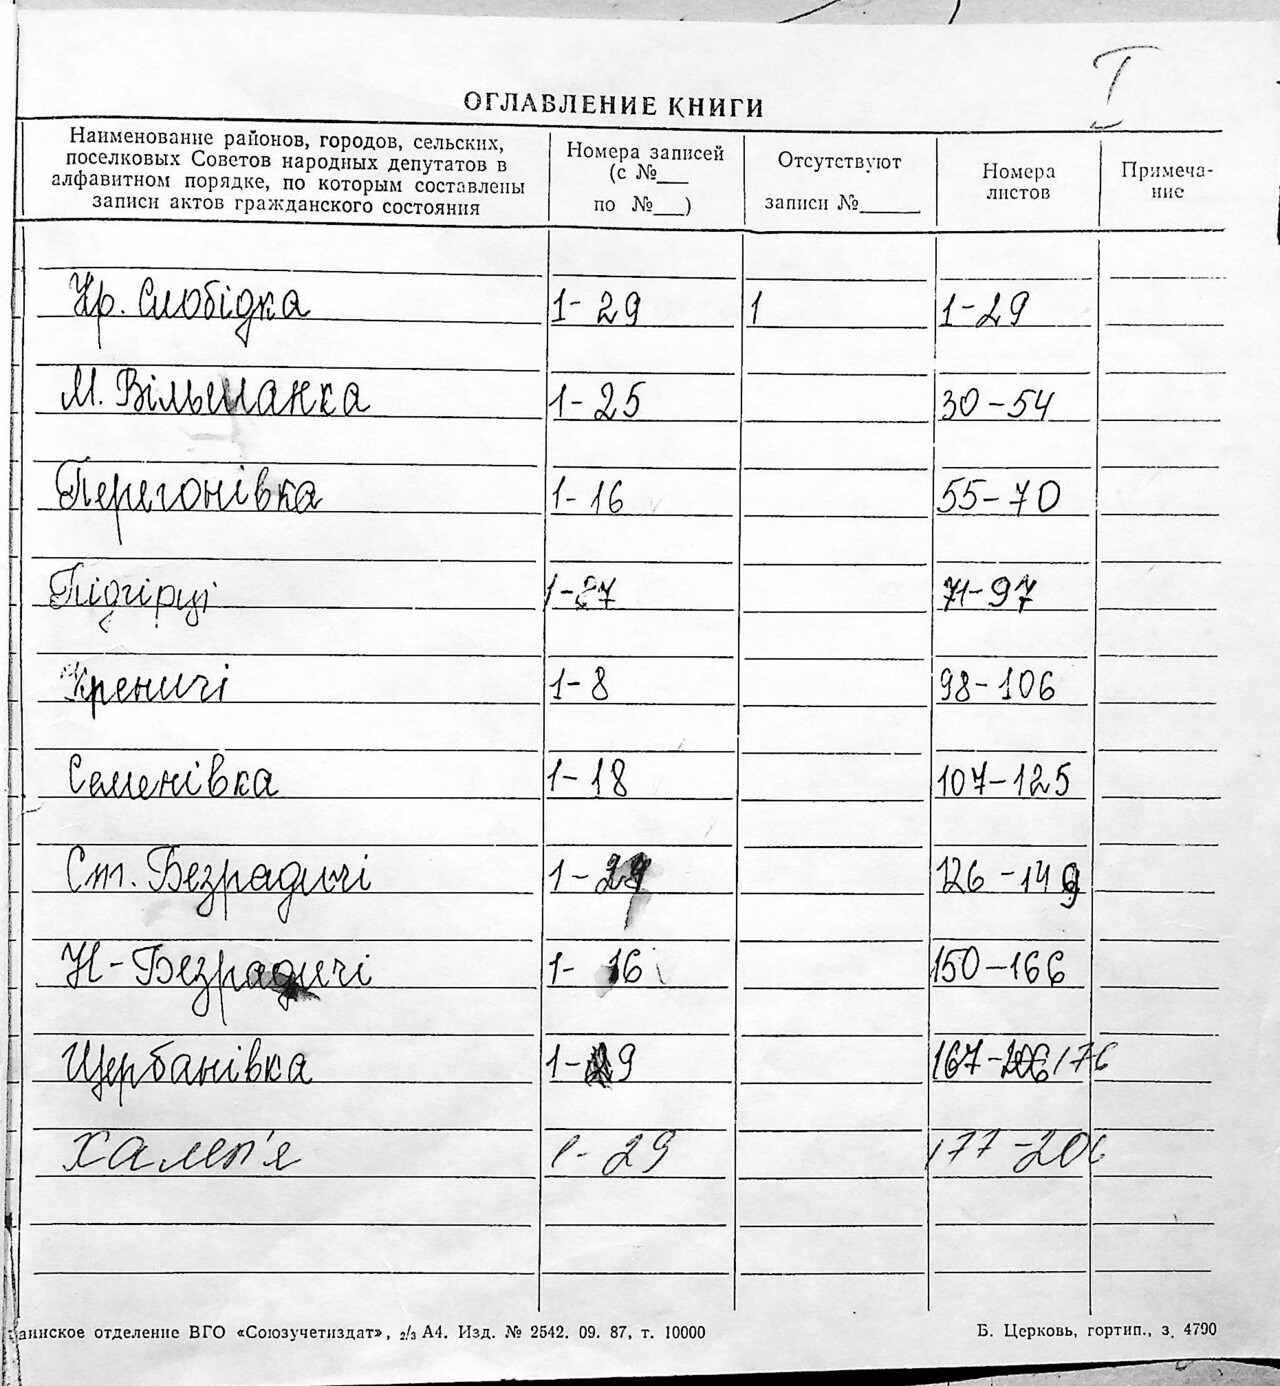 I
ОГЛАВЛЕНИЕ КНИГИ
Наименование районов, городов, сельских, поселковых Советов народных депутатов в алфавитном порядке, по которым составлены записи актов гражданского состояния
Номера записей (с №___ по №___)
Отсутствуют записи №______
Номера листов
Примечание
Кр. Слобідка 1-29 1 1-29
М. Вільшанка 1-25 30-54
Перегонівка 1-16 55-70
Підгірці 1-27 71-97
Креничі 1-8 98-106
Семенівка 1-18 107-125
Ст. Безрадичі 1-24 126-149
Н-Безрадичі 1-16 150-166
Щербанівка 1-9 167-176
Халеп'я 1-29 177-206
аинское отделение ВГО «Союзучетиздат», 2/3 А4. Изд. № 2542. 09. 87, т. 10000
Б. Церковь, гортип., з. 4790